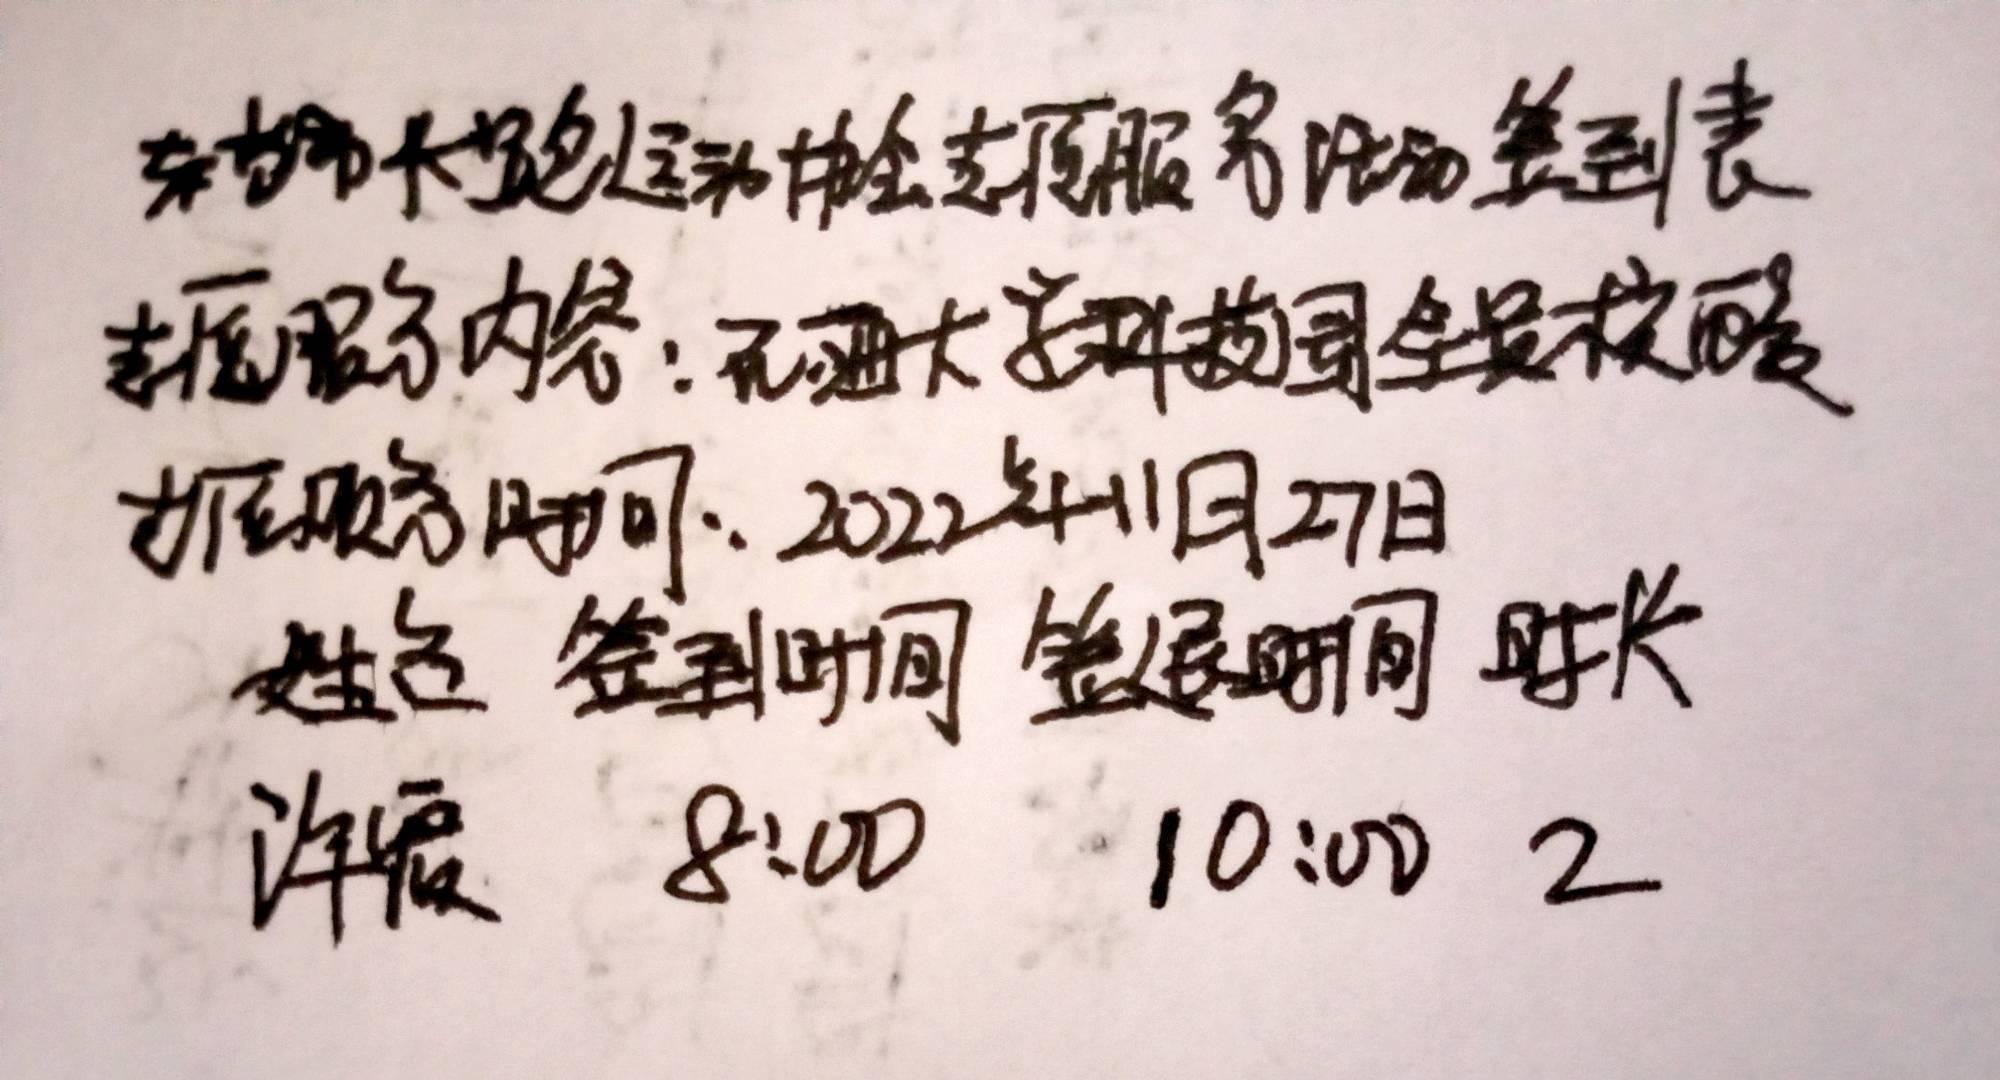 东台市长跑运动协会志愿服务活动签到表
志愿服务内容:河海大学科技园全员核酸
志愿服务时间:2022年11月27日
姓名 签到时间 签退时间 时长
许霞 8:00 10:00 2